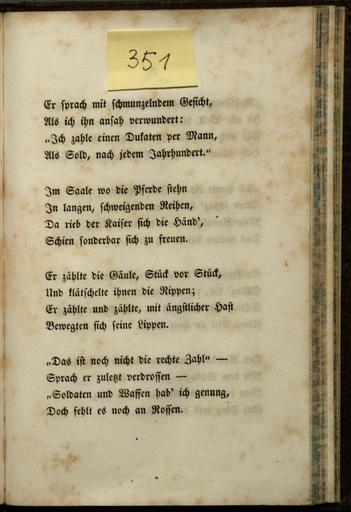 351
Er sprach mit schmunzelndem Gesicht,
Als ich ihn ansah verwundert:
„Ich zahle einen Dukaten per Mann,
Als Sold, nach jedem Jahrhundert.“
Im Saale wo die Pferde stehn
In langen, schweigenden Reihen,
Da rieb der Kaiser sich die Händ',
Schien sonderbar sich zu freuen.
Er zählte die Gäule, Stück vor Stück,
Und klätschelte ihnen die Rippen;
Er zählte und zählte, mit ängstlicher Hast
Bewegten sich seine Lippen.
„Das ist noch nicht die rechte Zahl“ —
Sprach er zuletzt verdrossen —
„Soldaten und Waffen hab' ich genung,
Doch fehlt es noch an Rossen.